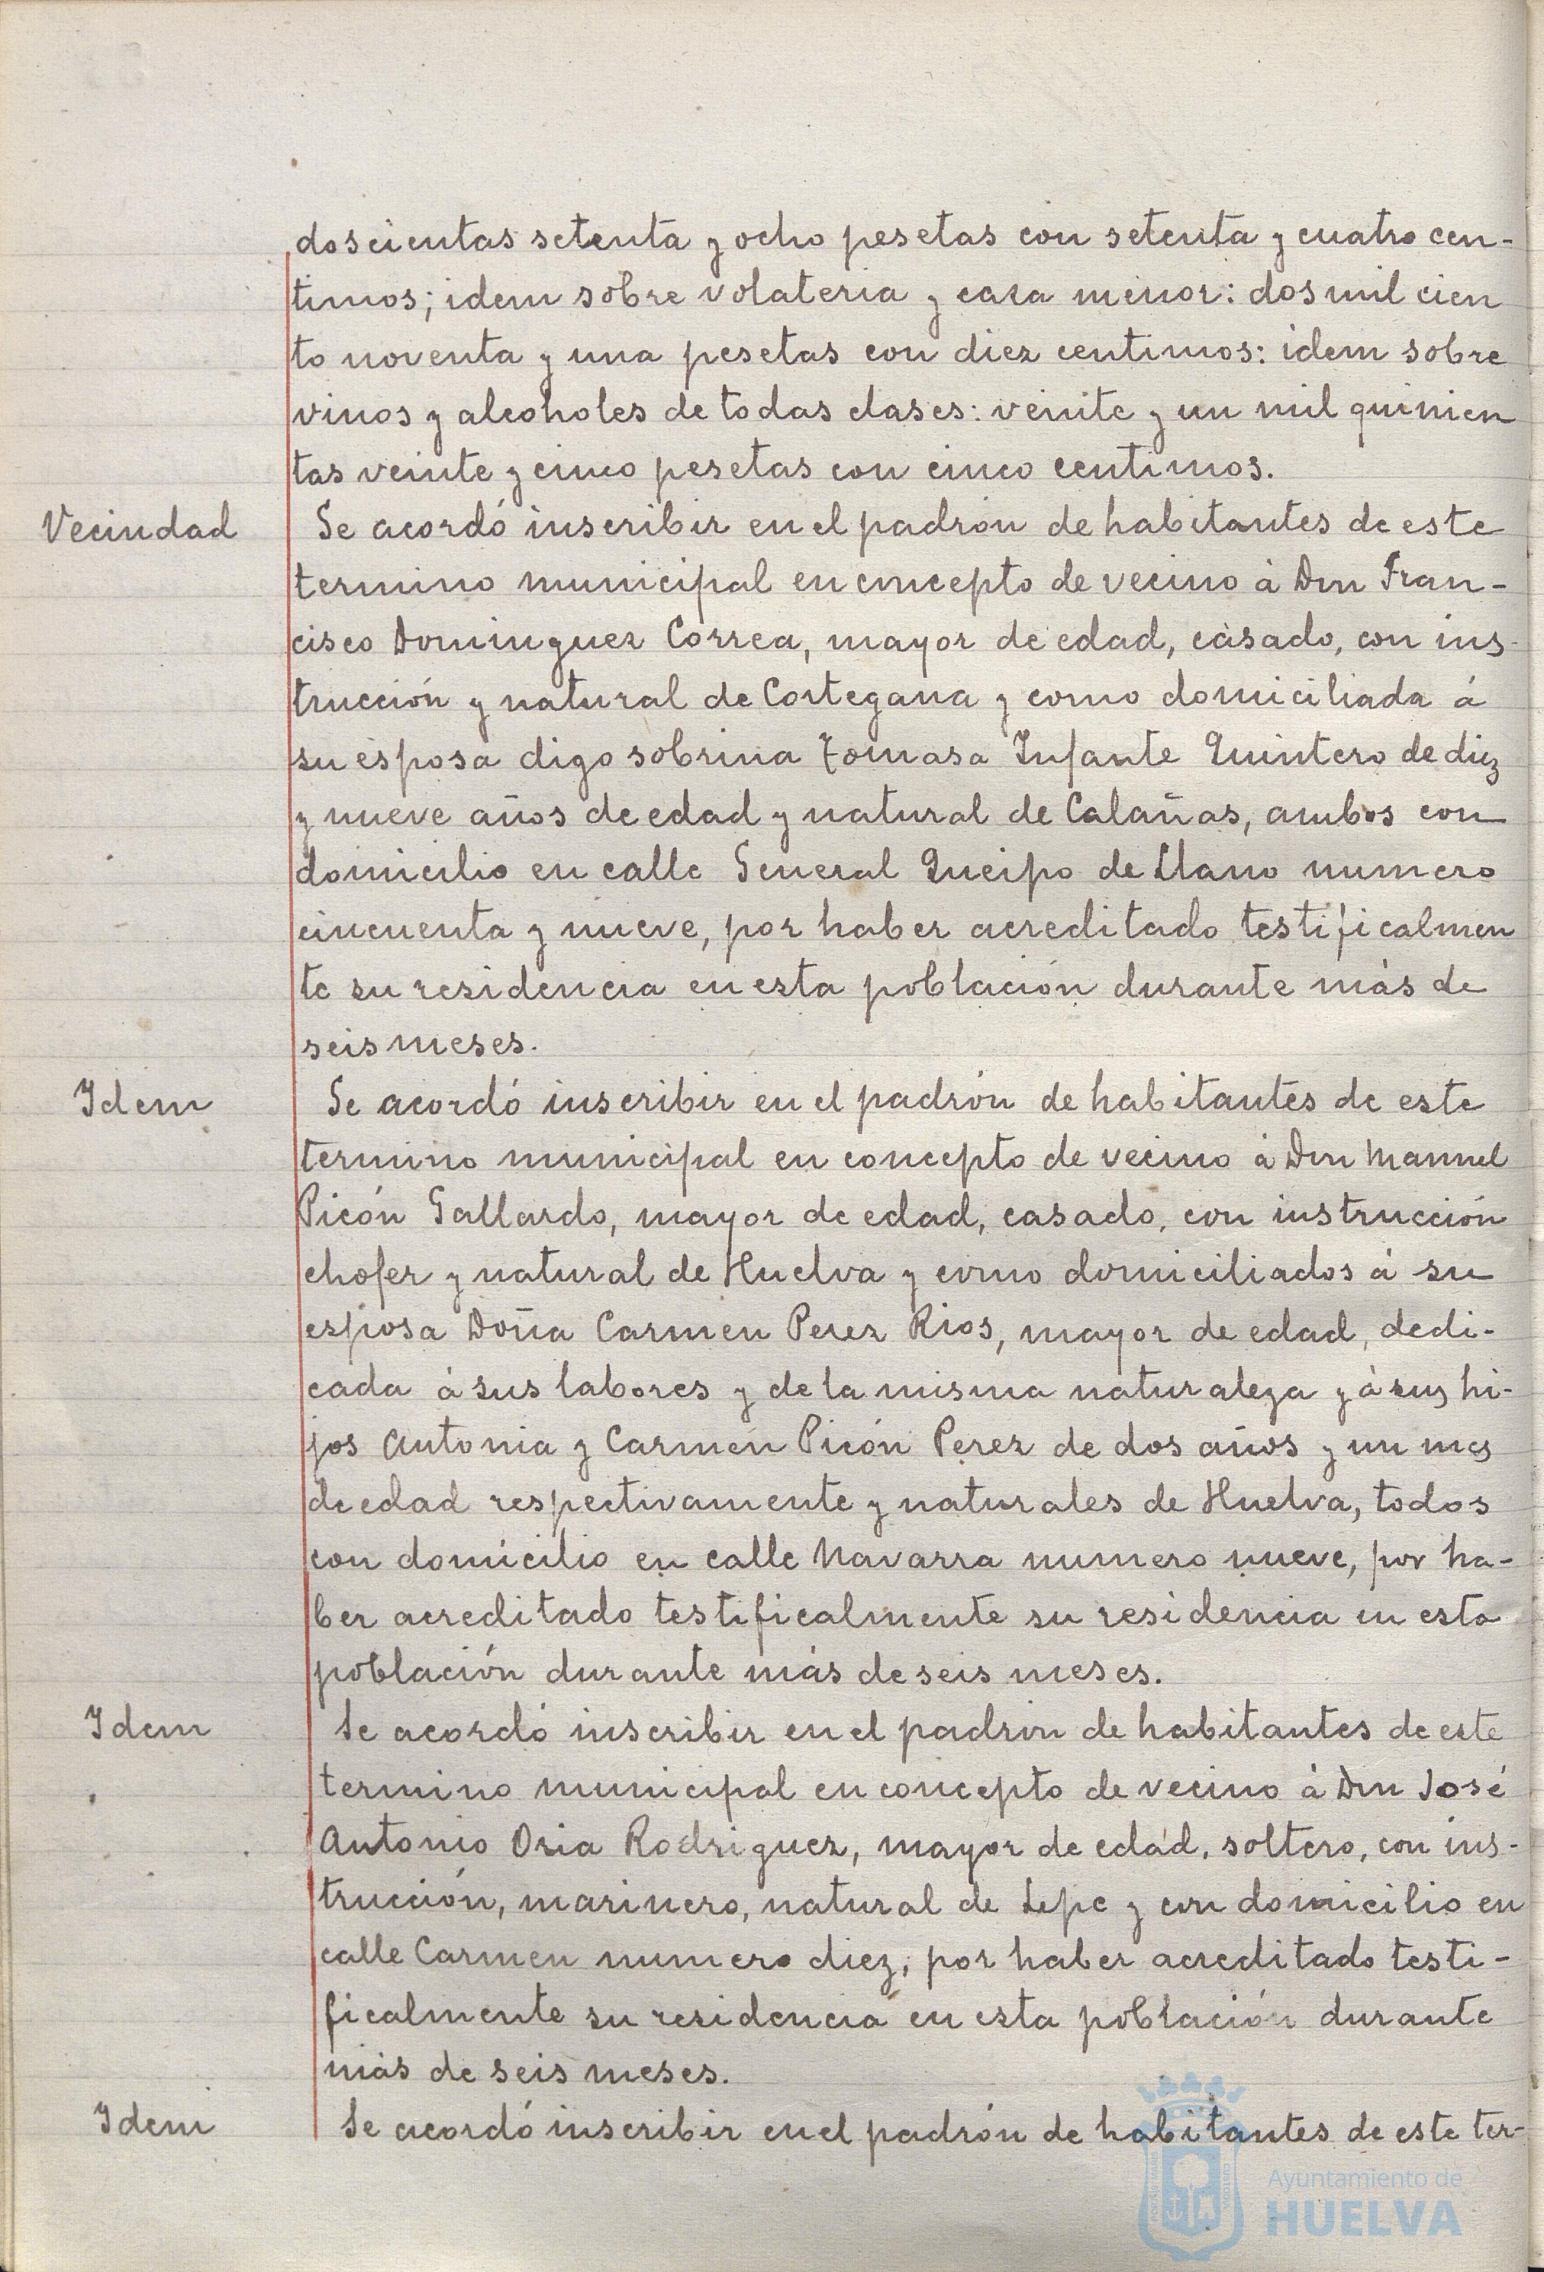 doscientas setenta y ocho pesetas con setenta y cuatro cen-
timos; idem sobre volateria y caza menor: dos mil cien
to noventa y una pesetas con diez centimos: idem sobre
vinos y alcoholes de todas clases: veinte y un mil quinien
tas veinte y cinco pesetas con cinco centimos.
Vecindad Se acordó inscribir en el padrón de habitantes de este
termino municipal en concepto de vecino à Don Fran-
cisco Dominguez Correa, mayor de edad, casado, con ins-
trucción y natural de Cortegana y como domiciliada á
su esposa digo sobrina Tomasa Infante Quintero de diez
y nueve años de edad y natural de Calañas, ambos con
domicilio en calle General Queipo de Llano numero
cincuenta y nueve, por haber acreditado testificalmen
te su residencia en esta población durante más de
seis meses.
Idem Se acordó inscribir en el padrón de habitantes de este
termino municipal en concepto de vecino à Don Manuel
Picón Gallardo, mayor de edad, casado, con instrucción
chofer y natural de Huelva y como domiciliados á su
esposa Doña Carmen Perez Rios, mayor de edad, dedi-
cada á sus labores y de la misma naturaleza y á sus hi-
jos Antonia y Carmen Picón Perez de dos años y un mes
de edad respectivamente y naturales de Huelva, todos
con domicilio en calle Navarra numero nueve, por ha-
ber acreditado testificalmente su residencia en esta
población durante más de seis meses.
Idem Se acordó inscribir en el padrón de habitantes de este
termino municipal en concepto de vecino à Don José
Antonio Oria Rodriguez, mayor de edad, soltero, con ins-
trucción, marinero, natural de Lepe y con domicilio en
calle Carmen numero diez, por haber acreditado testi-
ficalmente su residencia en esta población durante
más de seis meses.
Idem Se acordó inscribir en el padrón de habitantes de este ter-
Ayuntamiento de
HUELVA